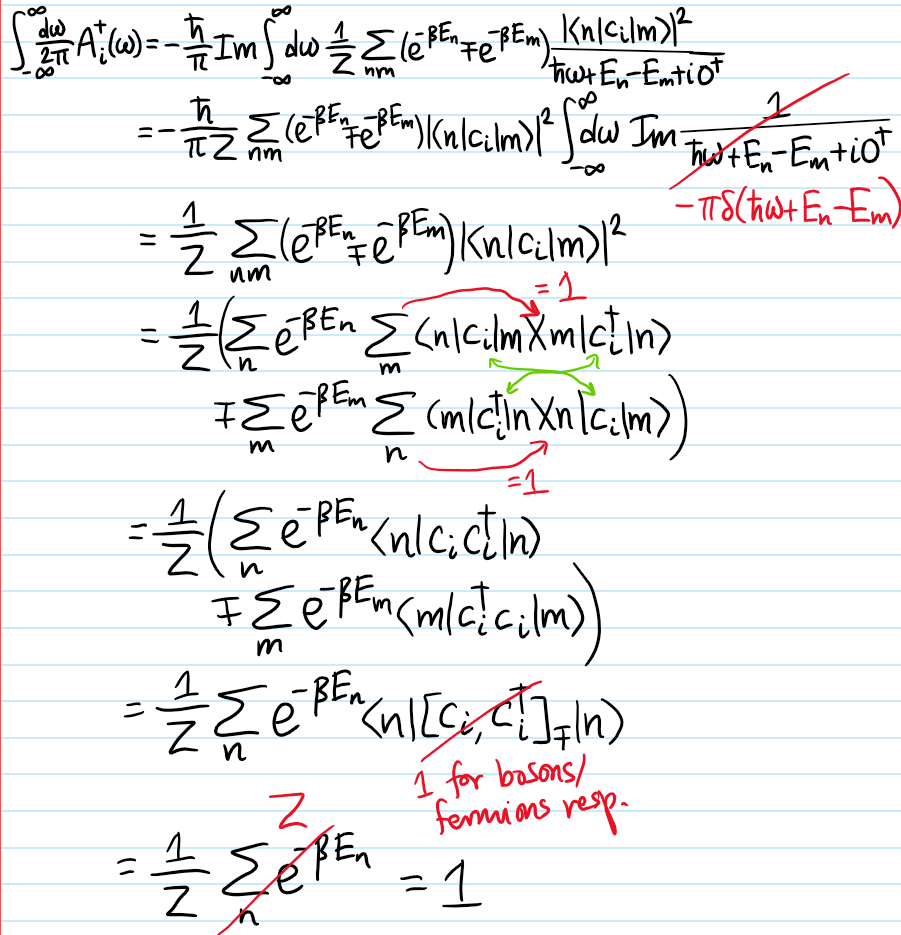 ∫_{-∞}^{∞} dω/2π A_i^+(ω) = -ħ/π Im ∫_{-∞}^{∞} dω 1/Z Σ_{nm} (e^{-βE_n} ∓ e^{-βE_m}) |⟨n|c_i|m⟩|² / (ħω+E_n-E_m+i0⁺)
= -ħ/(πZ) Σ_{nm} (e^{-βE_n} ∓ e^{-βE_m}) |⟨n|c_i|m⟩|² ∫_{-∞}^{∞} dω Im 1/(ħω+E_n-E_m+i0⁺)
-πδ(ħω+E_n-E_m)
= 1/Z Σ_{nm} (e^{-βE_n} ∓ e^{-βE_m}) |⟨n|c_i|m⟩|²
=1
= 1/Z (Σ_n e^{-βE_n} Σ_m ⟨n|c_i|m⟩⟨m|c_i^†|n⟩
∓ Σ_m e^{-βE_m} Σ_n ⟨m|c_i^†|n⟩⟨n|c_i|m⟩)
=1
= 1/Z (Σ_n e^{-βE_n} ⟨n|c_i c_i^†|n⟩
∓ Σ_m e^{-βE_m} ⟨m|c_i^† c_i|m⟩)
= 1/Z Σ_n e^{-βE_n} ⟨n|[c_i, c_i^†]_∓|n⟩
1 for bosons/
fermions resp.
Z
= 1/Z Σ_n e^{-βE_n} = 1